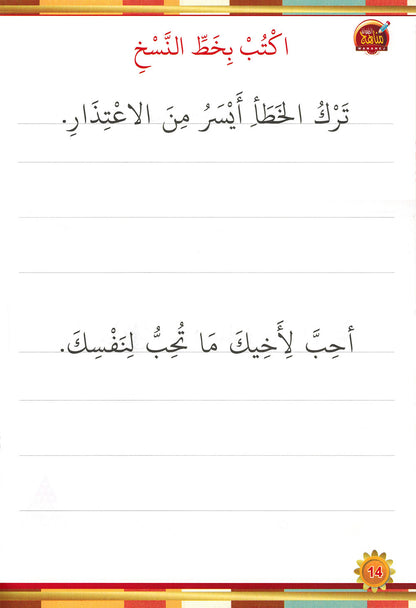 اكْتُبْ بِخَطِّ النَّسْخِ
مناهج
تَرْكُ الخَطَأِ أَيْسَرُ مِنَ الاعْتِذَارِ.
أحِبَّ لِأَخِيكَ مَا تُحِبُّ لِنَفْسِكَ.
14